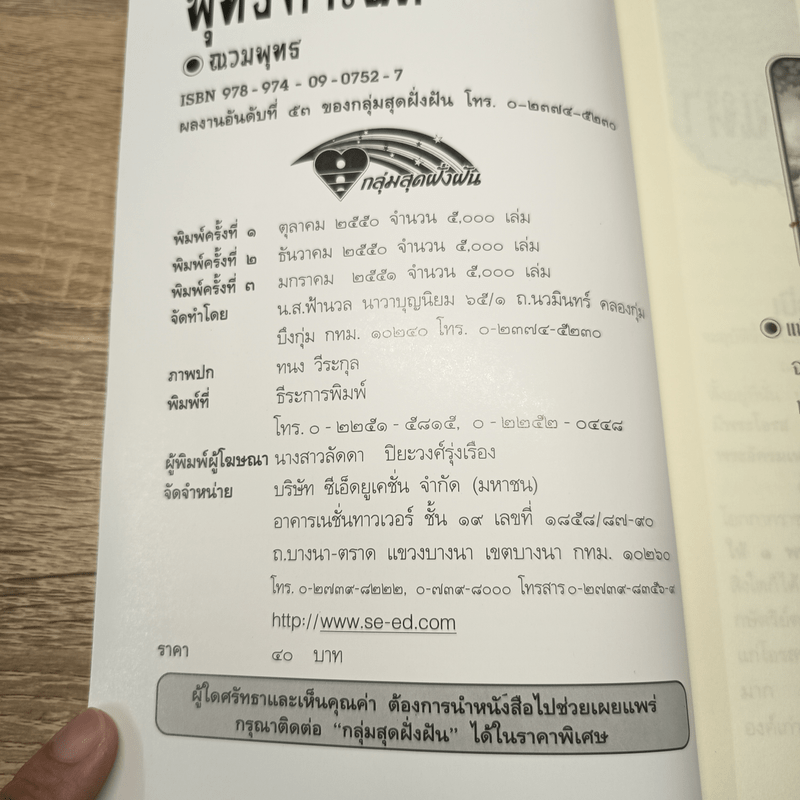 ณวมพุทธ
ISBN 978 - 974 - 09 - 0752 - 7
ผลงานอันดับที่ ๕๓ ของกลุ่มสุดฝั่งฝัน โทร. ๐-๒๓๗๔-๕๒๓๐
กลุ่มสุดฝั่งฝัน
พิมพ์ครั้งที่ ๑ ตุลาคม ๒๕๕๐ จำนวน ๕,๐๐๐ เล่ม
พิมพ์ครั้งที่ ๒ ธันวาคม ๒๕๕๐ จำนวน ๕,๐๐๐ เล่ม
พิมพ์ครั้งที่ ๓ มกราคม ๒๕๕๑ จำนวน ๕,๐๐๐ เล่ม
จัดทำโดย น.ส.ฟ้านวล นาวาบุญนิยม ๖๕/๑ ถ.นวมินทร์ คลองกุ่ม
บึงกุ่ม กทม. ๑๐๒๔๐ โทร. ๐-๒๓๗๔-๕๒๓๐
ภาพปก ทนง วีระกุล
พิมพ์ที่ ธีระการพิมพ์
โทร. ๐ - ๒๒๕๑ - ๕๘๑๕, ๐ - ๒๒๕๒ - ๐๔๔๘
ผู้พิมพ์ผู้โฆษณา นางสาวลัดดา ปิยะวงศ์รุ่งเรือง
จัดจำหน่าย บริษัท ซีเอ็ดยูเคชั่น จำกัด (มหาชน)
อาคารเนชั่นทาวเวอร์ ชั้น ๑๙ เลขที่ ๑๘๕๘/๘๗-๙๐
ถ.บางนา-ตราด แขวงบางนา เขตบางนา กทม. ๑๐๒๖๐
โทร. ๐-๒๗๓๙-๘๒๒๒, ๐-๗๓๙-๘๐๐๐ โทรสาร ๐-๒๗๓๙-๘๓๕๖-๙
http://www.se-ed.com
ราคา ๔๐ บาท
ผู้ใดศรัทธาและเห็นคุณค่า ต้องการนำหนังสือไปช่วยเผยแพร่
กรุณาติดต่อ "กลุ่มสุดฝั่งฝัน" ได้ในราคาพิเศษ